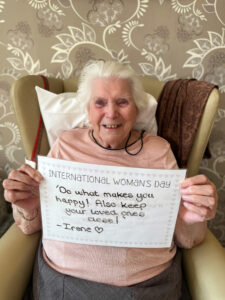 INTERNATIONAL WOMAN'S DAY
'Do what makes you
happy! Also keep
your loved ones
close!
- Irene ♡